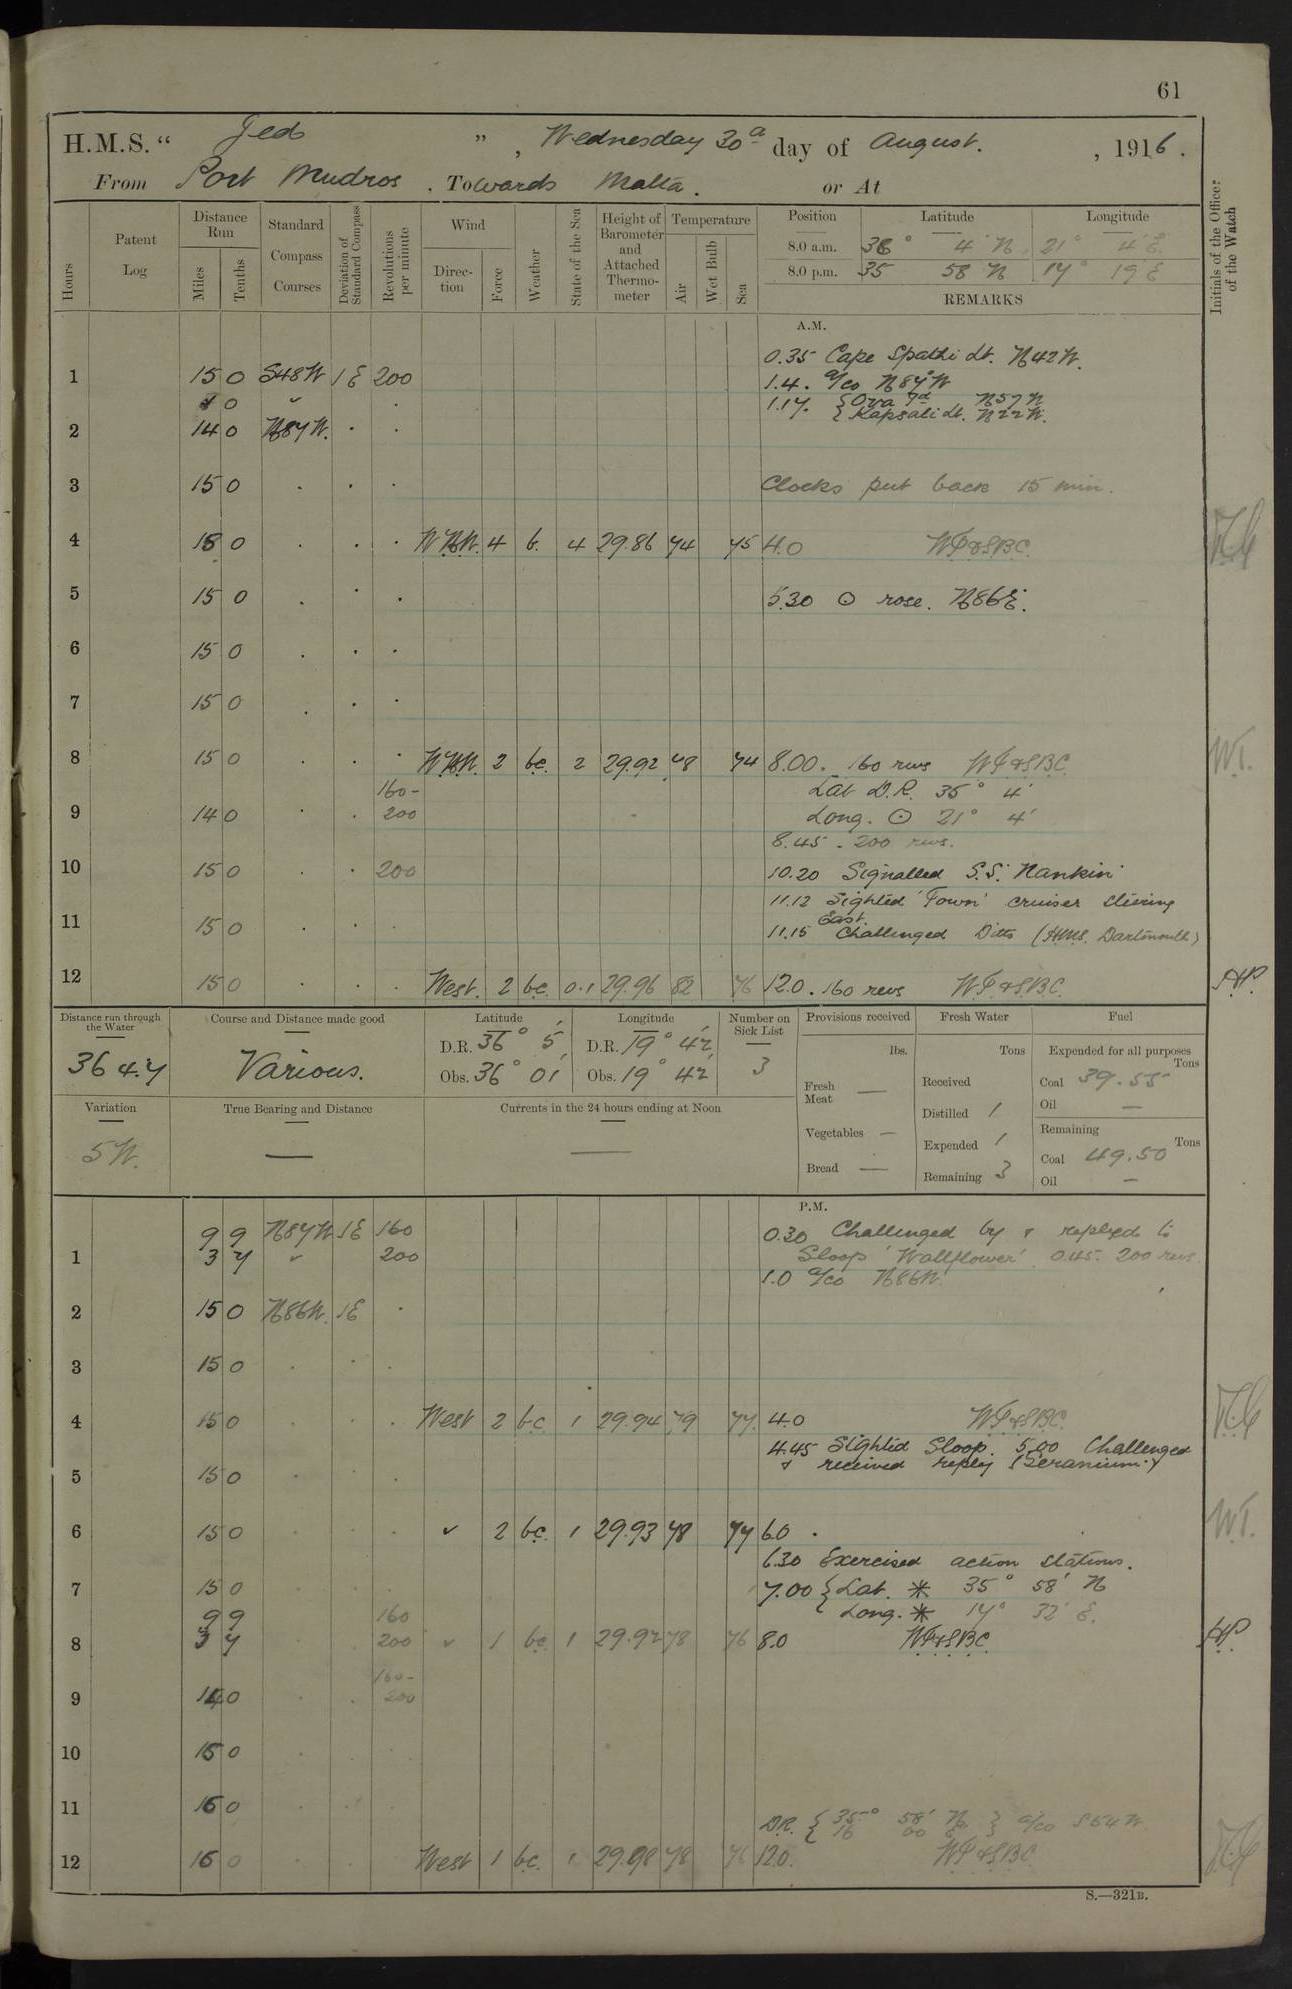 61
H.M.S. "Jed", Wednesday 30th day of August. , 1916.
From Port Mudros. Towards Malta. or At
Hours
Patent Log
Distance Run
Miles
Tenths
Standard Compass Courses
Deviation of Standard Compass
Revolutions per minute
Wind
Direction
Force
Weather
State of the Sea
Height of Barometer and Attached Thermometer
Temperature
Air
Wet Bulb
Sea
Position Latitude Longitude
8.0 a.m. 36° 4' N. 21° 4' E.
8.0 p.m. 35 58 N 17° 19 E
REMARKS
Initials of the Officer of the Watch
A.M.
0.35 Cape Spathi Lt. N42W.
1 15 0 S48W 1E 200 1.4. a/co N87W
1 0 " . 1.17. { Ova Id N57W
{ Kapsali Lt. N22W.
2 14 0 N87W. . .
3 15 0 . . . Clocks put back 15 min.
4 15 0 . . . WNW. 4 b. 4 29.86 74 75 4.0 WT&SBC.
5 15 0 . . . 5.30 ⊙ rose. N86E.
6 15 0 . . .
7 15 0 . . .
8 15 0 . . . WNW. 2 bc. 2 29.92 78 74 8.00. 160 revs WT&SBC
160- Lat D.R. 36° 4'
9 14 0 . . 200 Long. ⊙ 21° 4'
8.45. 200 revs.
10 15 0 . . 200 10.20 Signalled S.S. Nankin
11.12 Sighted 'Town' cruiser steering East.
11 15 0 . . . 11.15 Challenged Ditto (HMS. Dartmouth)
12 15 0 . . . West. 2 bc. 0.1 29.96 82 76 12.0. 160 revs WT&SBC. HP.
Distance run through the Water
364.7
Course and Distance made good
Various.
Latitude
D.R. 36° 5'
Obs. 36° 01'
Longitude
D.R. 19° 42'
Obs. 19° 42'
Number on Sick List
3
Provisions received
lbs.
Fresh Meat —
Vegetables —
Bread —
Fresh Water
Tons
Received
Distilled 1
Expended 1
Remaining 3
Fuel
Expended for all purposes
Tons
Coal 39.55
Oil —
Remaining
Tons
Coal 49.50
Oil —
Variation
5W.
True Bearing and Distance
—
Currents in the 24 hours ending at Noon
—
P.M.
9 9 N87W 1E 160 0.30 Challenged by & replyed to
1 3 7 " 200 Sloop 'Wallflower'. 0.45. 200 revs
1.0 a/co N86W.
2 15 0 N86W. 1E .
3 15 0 . . .
4 15 0 . . . West 2 bc 1 29.94 79 77. 4.0 WT&SBC.
4.45 Sighted Sloop. 5.00 Challenged
5 15 0 . . . & received reply (Geranium.)
6 15 0 . . . " 2 bc. 1 29.93 78 77 6.0 . WT.
6.30 Exercised action stations.
7 15 0 7.00 { Lat. * 35° 58' N
9 9 160 Long. * 17° 32' E.
8 3 7 200 " 1 bc 1 29.92 78 76 8.0 WT&SBC HP.
160-
9 14 0 . . 200
10 15 0
11 15 0
D.R. { 35° 58' N
16 00 E } a/co S64W
12 15 0 West 1 bc. 1 29.98 78 76 12.0. WT&SBC
S.—321B.